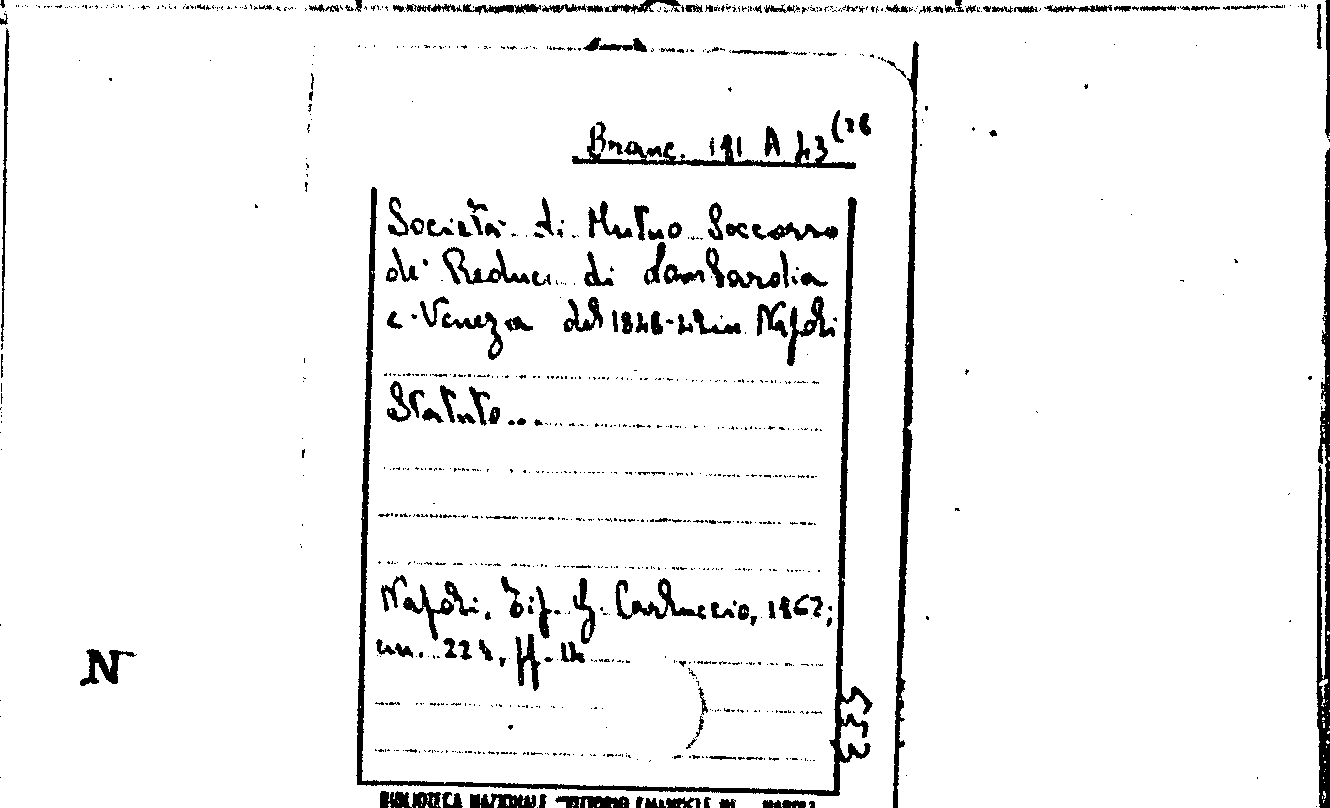 Branc. 191 A 43 (28
Società di Mutuo Soccorso
de' Reduci di Lombardia
e Venezia del 1848-49 in Napoli
Statuto...
Napoli, Tip. G. Carluccio, 1862;
cm. 22 , pp. 14
N
BIBLIOTECA NAZIONALE "VITTORIO EMANUELE III" NAPOLI